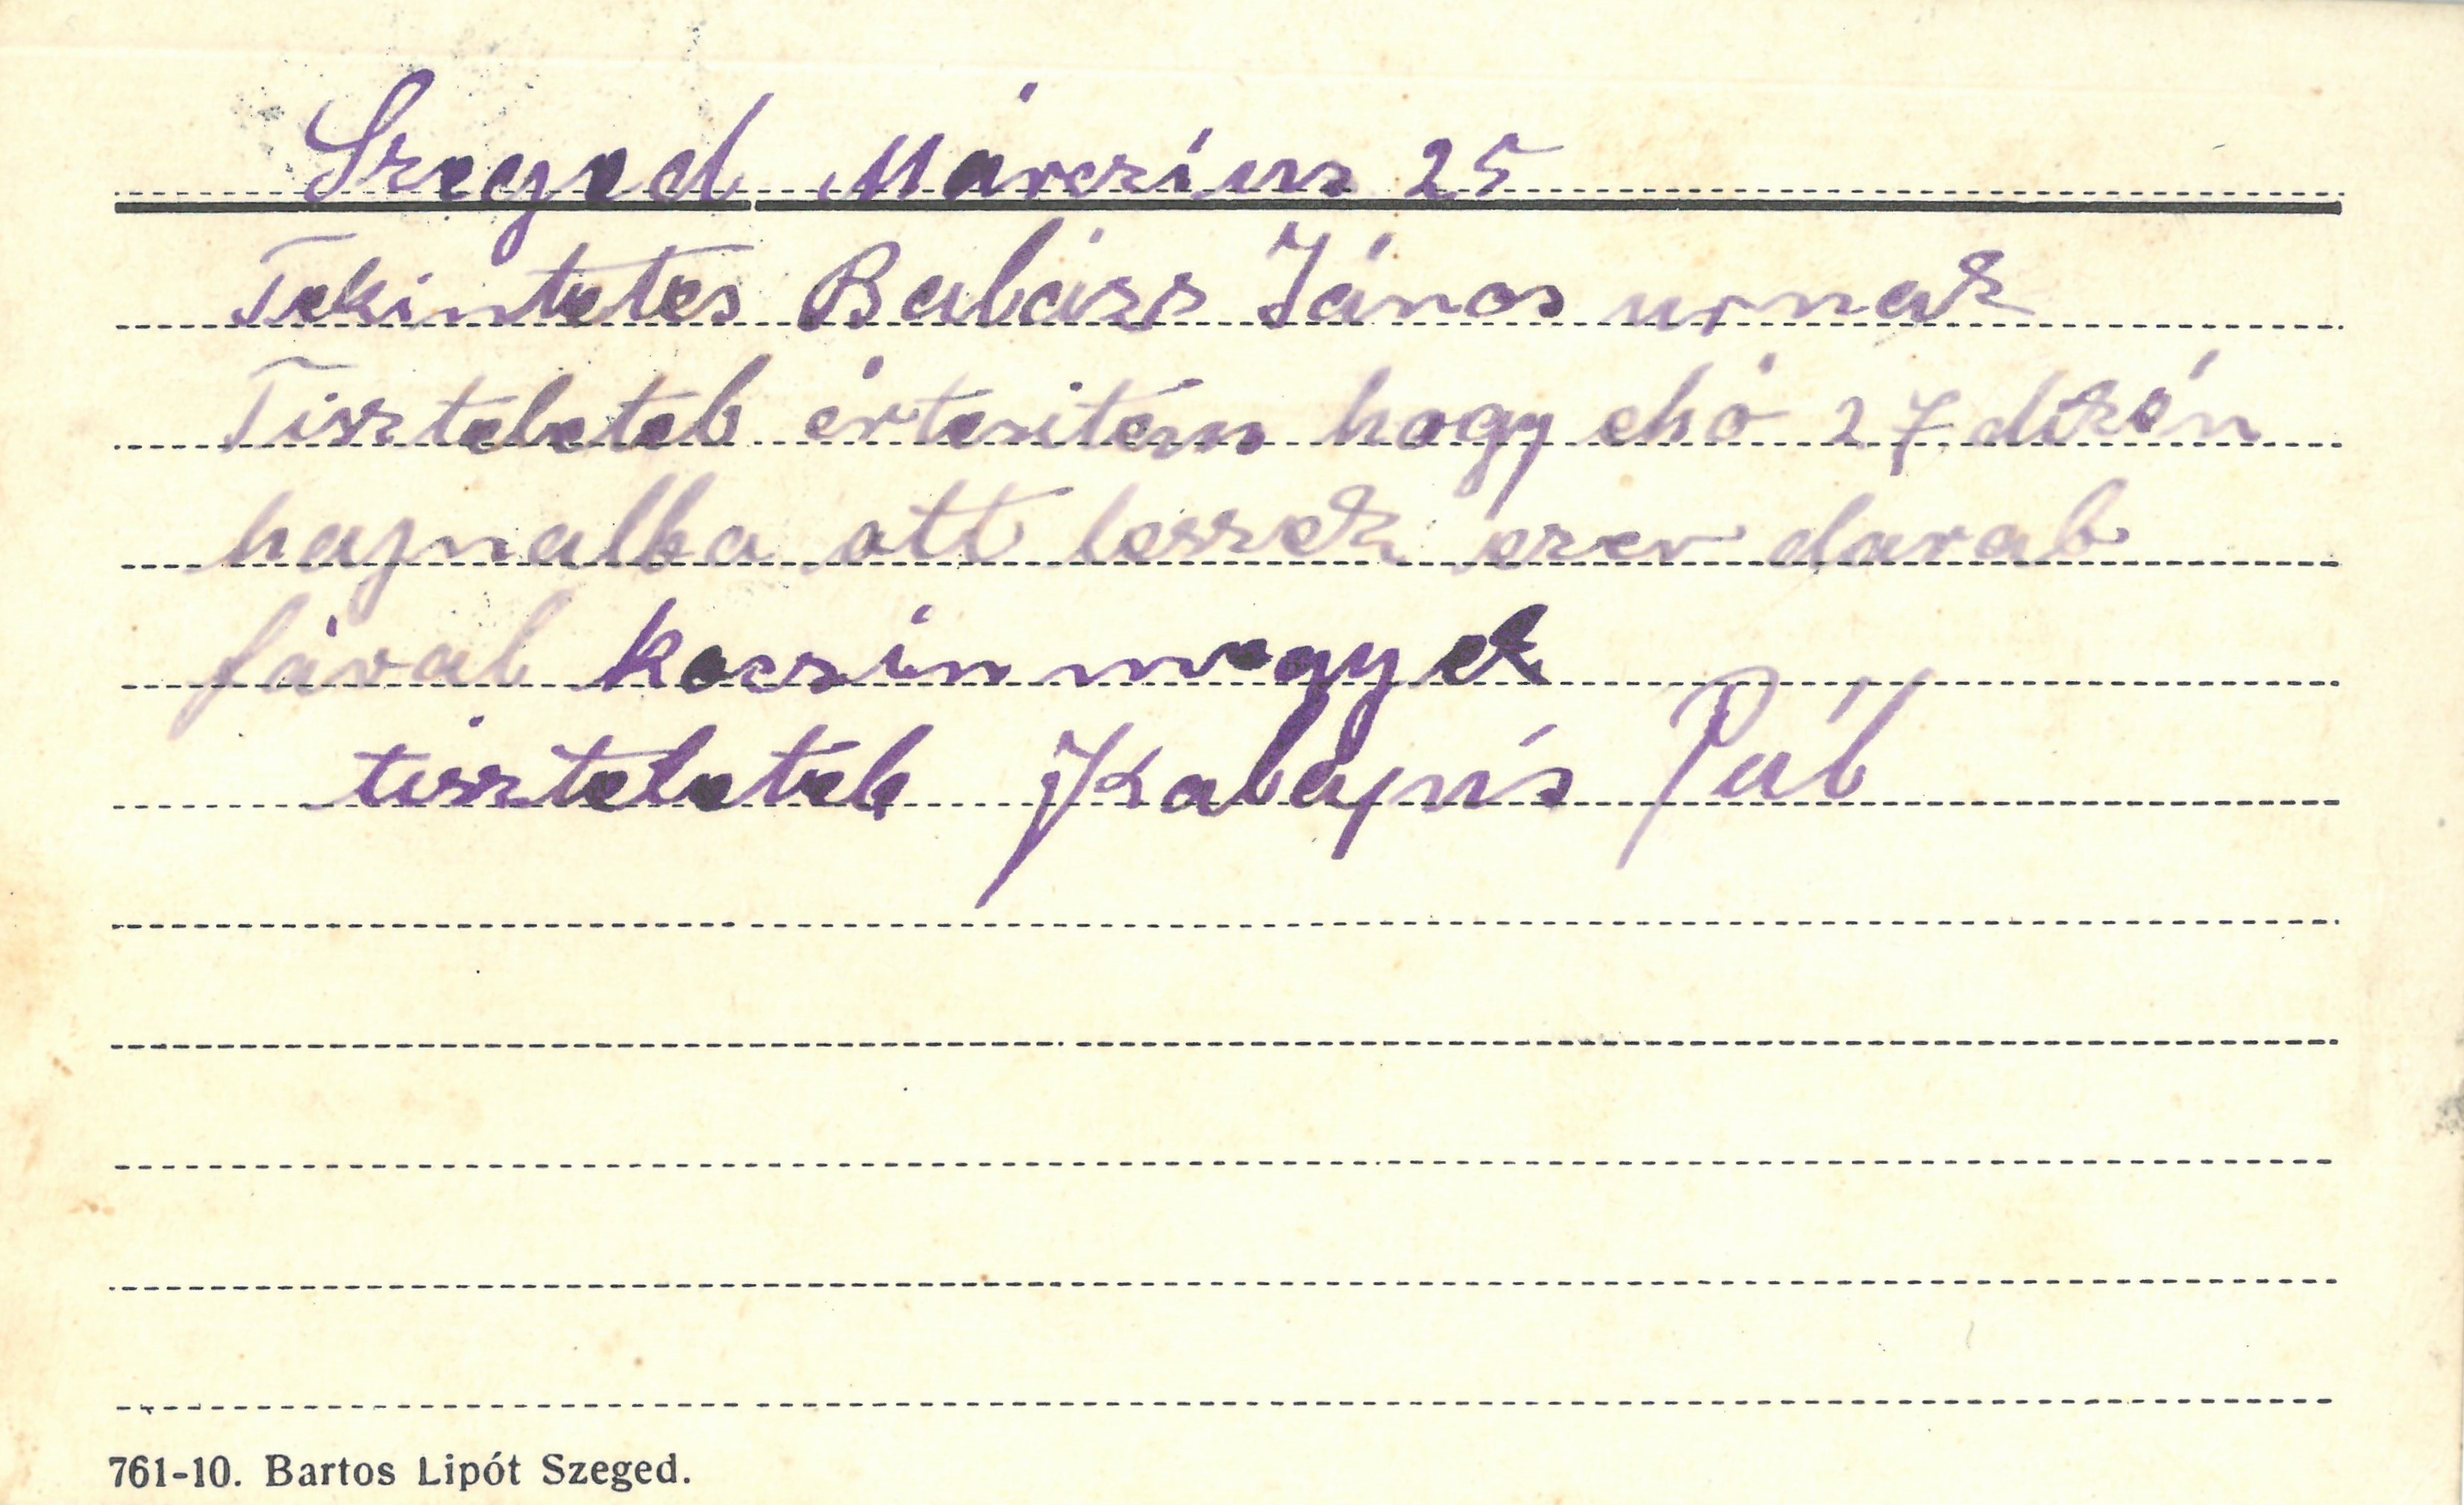 Szeged Márczius 25
Tekintetes Balázs János urnak
Tiszteletel értesitém hogy ehó 27 dikén
hajnalba ott leszek ezer darab
fával kocsin megyek
tiszteletel Kalapis Pál
761-10. Bartos Lipót Szeged.